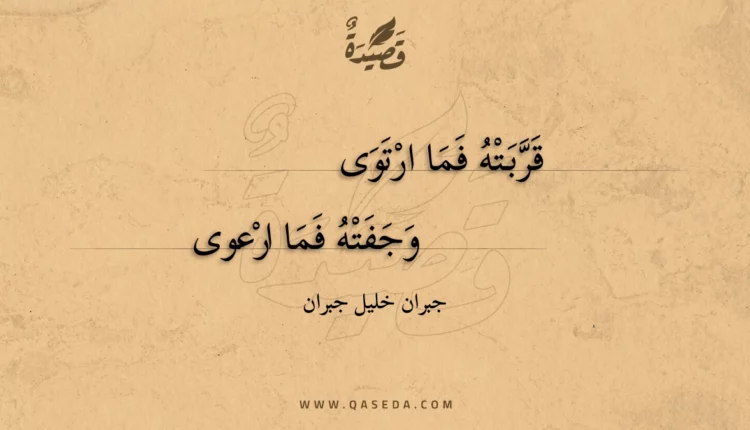 قَصِيْدَةٌ
قَرَّبَتْهُ فَمَا ارْتَوَى
وَجَفَتْهُ فَمَا ارْعوى
جبران خليل جبران
WWW.QASEDA.COM